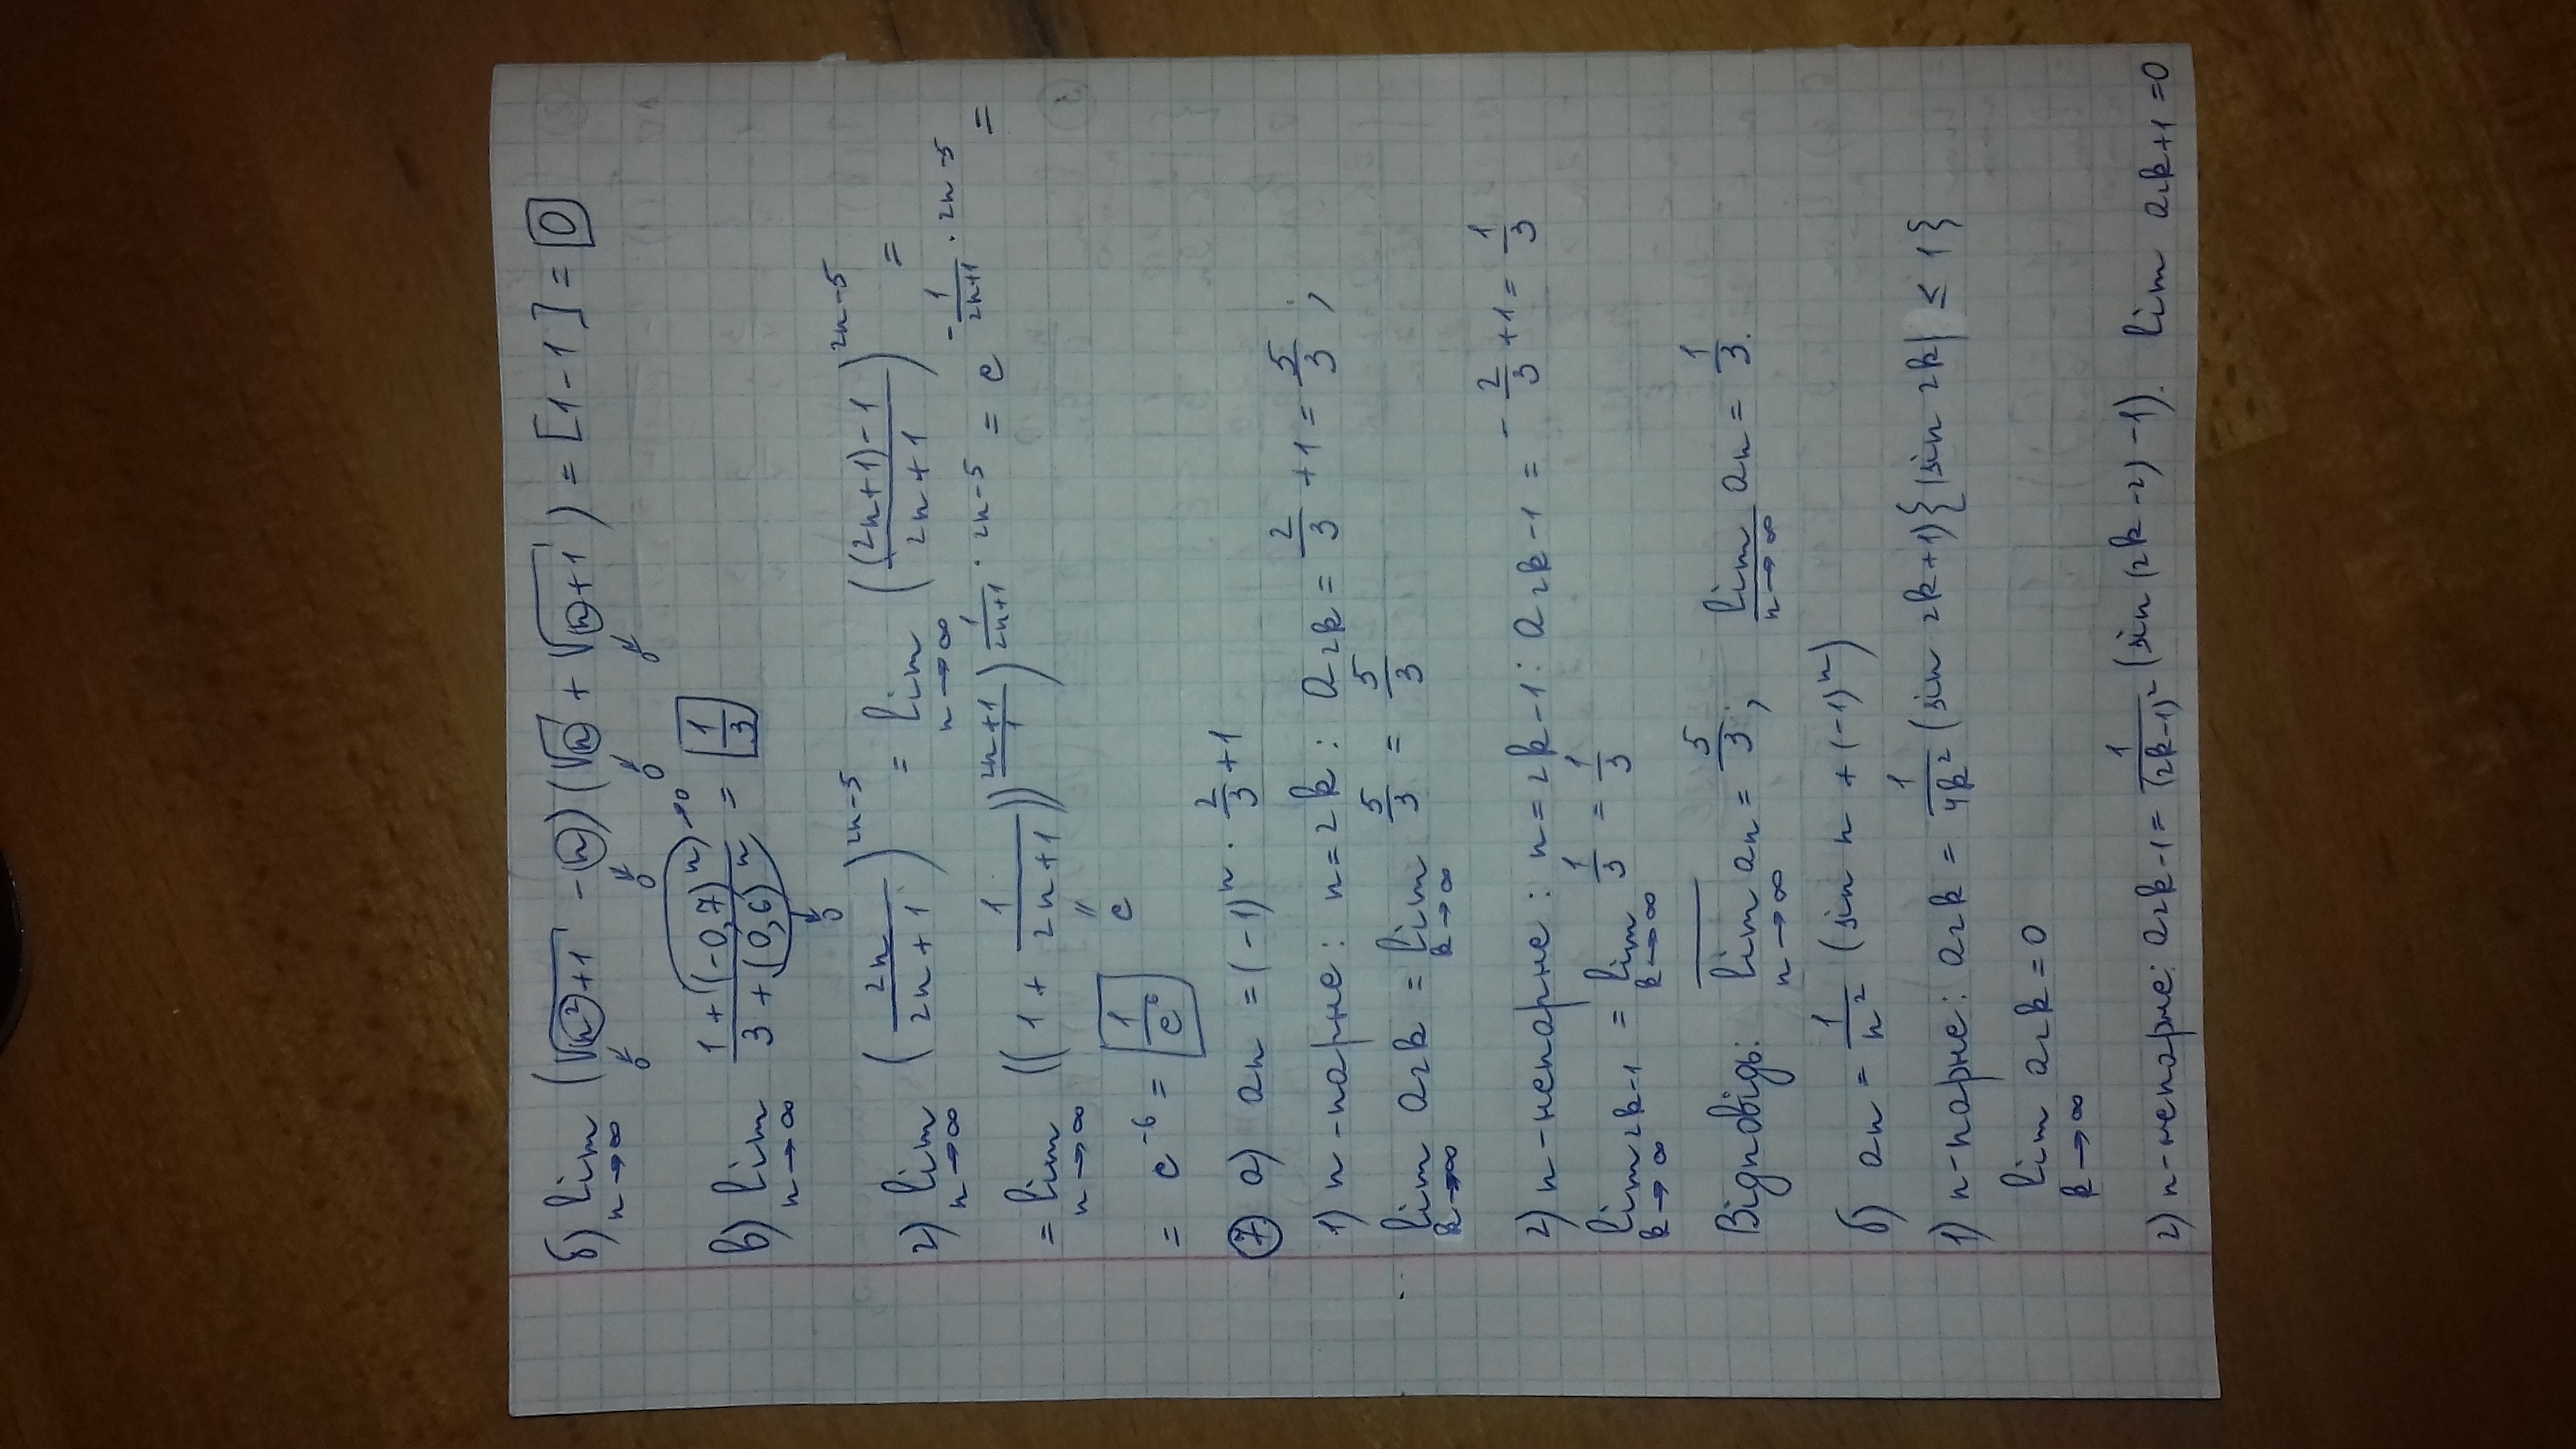 б) lim n→∞ (√(n²+1) - n)(√n + √(n+1)) = [1-1] = 0
в) lim n→∞ (1+(-0,7)ⁿ)/(3+(0,6)ⁿ) = 1/3
г) lim n→∞ (2n/(2n+1))^(2n-5) = lim n→∞ (((2n+1)-1)/(2n+1))^(2n-5) =
= lim n→∞ ((1 + 1/(2n+1))^((2n+1)/1))^(1/(2n+1) · 2n-5) = e^(-1/(2n+1) · 2n-5) =
= e⁻⁶ = 1/e⁶ e
⑦ а) an = (-1)ⁿ · 2/3 + 1
1) n - парне: n=2k: a2k = 2/3 + 1 = 5/3;
lim k→∞ a2k = lim k→∞ 5/3 = 5/3
2) n - непарне: n=2k-1: a2k-1 = -2/3 + 1 = 1/3
lim k→∞ 2k-1 = lim k→∞ 1/3 = 1/3
Відповідь: lim n→∞ an = 5/3; lim n→∞ an = 1/3.
б) an = 1/n² (sin n + (-1)ⁿ)
1) n - парне: a2k = 1/4k² (sin 2k+1) {|sin 2k| ≤ 1}
lim k→∞ a2k = 0
2) n - непарне: a2k-1 = 1/(2k-1)² (sin (2k-2) -1). lim a2k+1 = 0